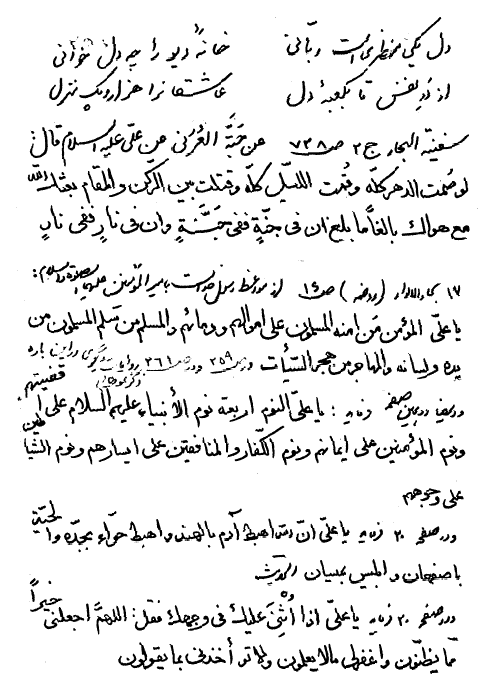 دل یکی منظری است ربّانی خانهٔ دیو را چه دل خوانی
از در نفس تا بکعبهٔ دل عاشقانرا هزار و یک منزل
سفینة البحار ج ۲ ص ۷۳۸ عن حبّة العُرَنی عن علیّ علیه السلام قال
لو صُمت الدهر کلّه و قُمت اللیل کلّه و قتلت بین الرّکن و المقام بعثک اللّه
مع هواک بالغاً ما بلغ ان فی جنّةٍ ففی جَنّةٍ و ان فی نارٍ ففی نارٍ
۱۷ بحار الانوار (روضه) ص ۱۵ از مواعظ رسول خداست بامیر المؤمنین علیهما الصلوة و السلام:
یا علیّ المؤمن من امنه المسلمون علی اموالهم و دمائهم و المسلم من تسلم المسلمون من
یده و لسانه و المهاجر من هجر السّیّئات و در ص ۲۵۹ و در ص ۲۶۱ روایات در این باره
و نیز در همین صفحه فرماید: یا علیّ النوم اربعة نوم الأنبیاء علیهم السلام علی اقفیتهم
و نوم المؤمنین علی ایمانهم و نوم الکفّار و المنافقین علی ایسارهم و نوم الشیاطین
علی وجوههم
و در صفحه ۲۰ فرماید یا علیّ انّ اهبط آدم بالهند و اهبط حوّاء بجدّة و الحیّة
باصفهان و ابلیس بمیسان الحدیث
و در صفحه ۲۰ فرماید یا علیّ اذا أُثنِیَ علیک فی وجهک فقل: اللهمّ اجعلنی خیراً
ممّا یظنّون و اغفر لی ما لا یعلمون و لا تؤاخذنی بما یقولون